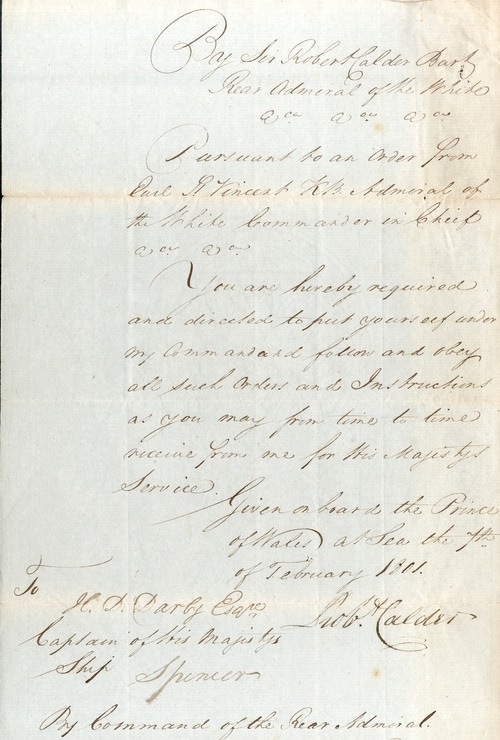 By Sir Robert Calder Bart
Rear Admiral of the White
&ca &ca &ca
Pursuant to an Order from
Earl St Vincent KB. Admiral of
the White Commander in Chief
&ca &ca
You are hereby required
and directed to put yourself under
my Command and follow and obey
all such Orders and Instructions
as you may from time to time
receive from me for His Majestys
Service.
Given on board the Prince
of Wales at Sea the 7th
of February 1801.
To
H. D. Darby Esqre
Robt Calder
Captain of His Majestys
Ship Spencer
By Command of the Rear Admiral.